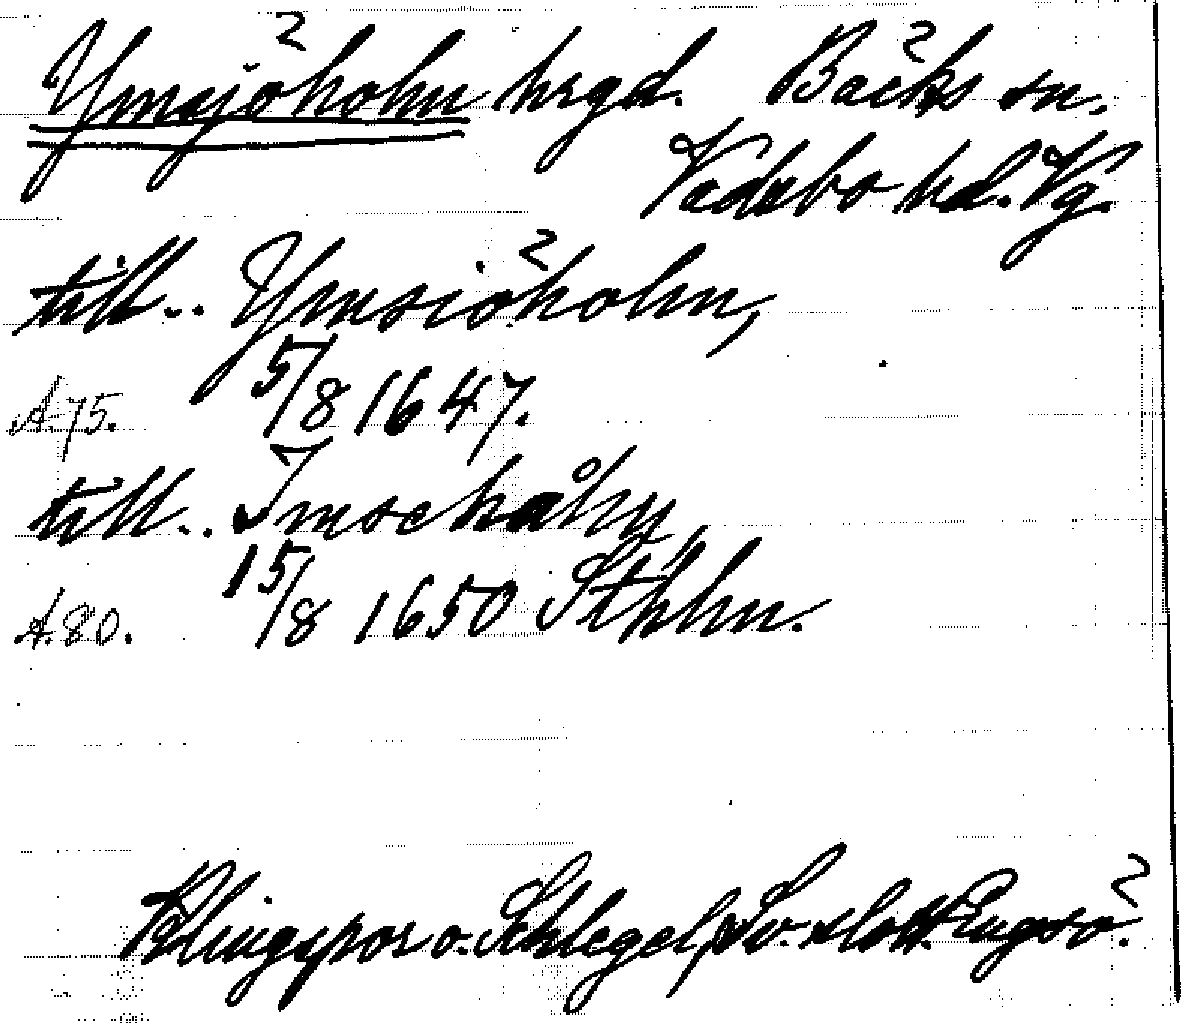 Ymsjöholm hrgd. Bäcks sn.
Vadsbo hd. Vg.
till.. Ymsiöholm,
A.75. 5/8 1647.
till.. Imsehålm,
A.80. 15/8 1650 Sthlm.
Klingspor o. Schlegel, Sv. slott. Engsö.